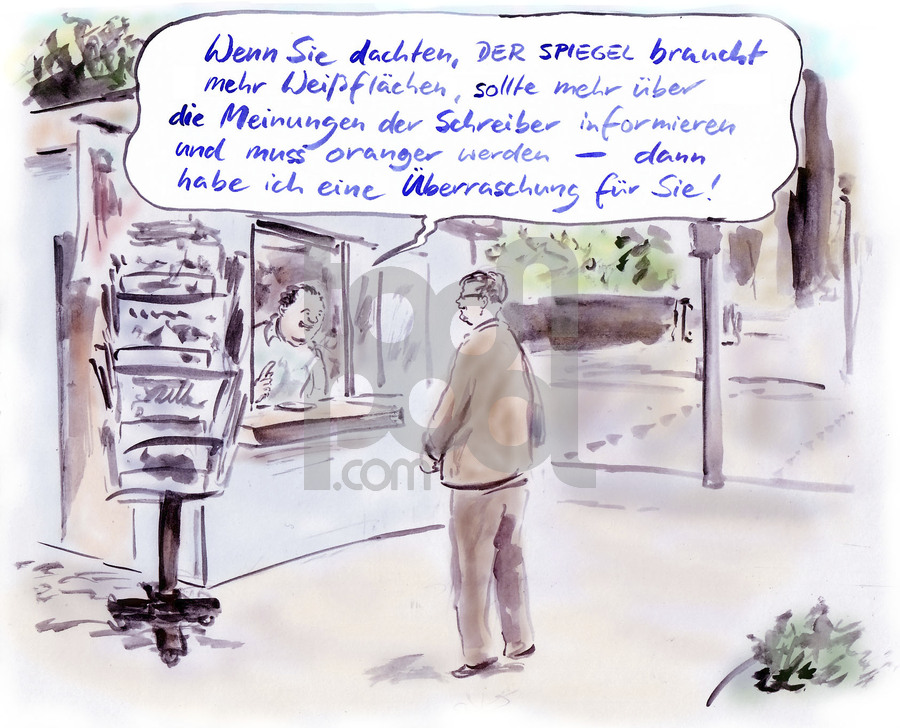 Wenn Sie dachten, DER SPIEGEL braucht
mehr Weißflächen, sollte mehr über
die Meinungen der Schreiber informieren
und muss oranger werden – dann
habe ich eine Überraschung für Sie!
pdl
.com